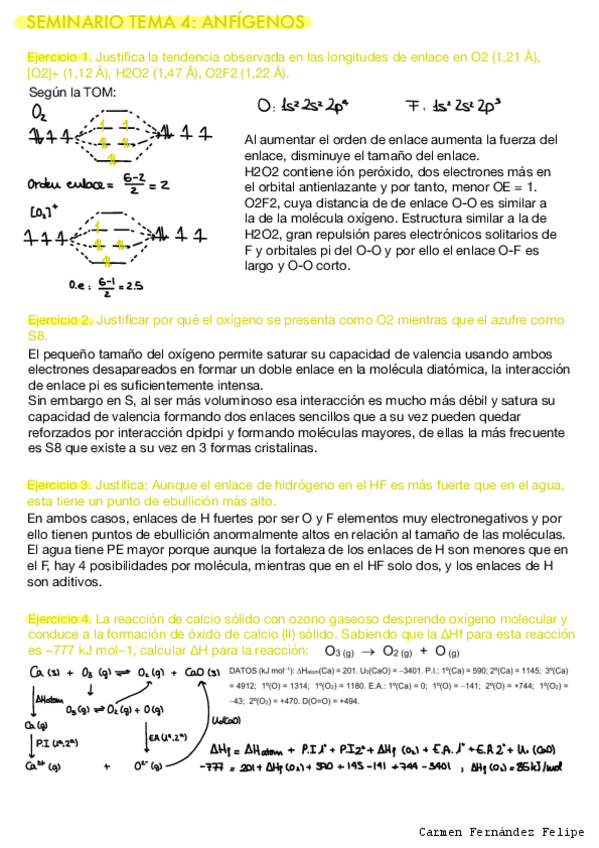 SEMINARIO TEMA 4: ANFÍGENOS
Ejercicio 1. Justifica la tendencia observada en las longitudes de enlace en O2 (1,21 Å),
[O2]+ (1,12 Å), H2O2 (1,47 Å), O2F2 (1,22 Å).
Según la TOM:
O₂
O: 1s² 2s² 2p⁴ F: 1s² 2s² 2p³
Orden enlace = 6-2/2 = 2
[O₂]⁺
O.e: 6-1/2 = 2.5
Al aumentar el orden de enlace aumenta la fuerza del
enlace, disminuye el tamaño del enlace.
H2O2 contiene ión peróxido, dos electrones más en
el orbital antienlazante y por tanto, menor OE = 1.
O2F2, cuya distancia de de enlace O-O es similar a
la de la molécula oxígeno. Estructura similar a la de
H2O2, gran repulsión pares electrónicos solitarios de
F y orbitales pi del O-O y por ello el enlace O-F es
largo y O-O corto.
Ejercicio 2. Justificar por qué el oxígeno se presenta como O2 mientras que el azufre como
S8.
El pequeño tamaño del oxígeno permite saturar su capacidad de valencia usando ambos
electrones desapareados en formar un doble enlace en la molécula diatómica, la interacción
de enlace pi es suficientemente intensa.
Sin embargo en S, al ser más voluminoso esa interacción es mucho más débil y satura su
capacidad de valencia formando dos enlaces sencillos que a su vez pueden quedar
reforzados por interacción dpidpi y formando moléculas mayores, de ellas la más frecuente
es S8 que existe a su vez en 3 formas cristalinas.
Ejercicio 3. Justifica: Aunque el enlace de hidrógeno en el HF es más fuerte que en el agua,
esta tiene un punto de ebullición más alto.
En ambos casos, enlaces de H fuertes por ser O y F elementos muy electronegativos y por
ello tienen puntos de ebullición anormalmente altos en relación al tamaño de las moléculas.
El agua tiene PE mayor porque aunque la fortaleza de los enlaces de H son menores que en
el F, hay 4 posibilidades por molécula, mientras que en el HF solo dos, y los enlaces de H
son aditivos.
Ejercicio 4. La reacción de calcio sólido con ozono gaseoso desprende oxígeno molecular y
conduce a la formación de óxido de calcio (II) sólido. Sabiendo que la ΔHf para esta reacción
es −777 kJ mol−1, calcular ΔH para la reacción: O₃ (g) → O₂ (g) + O (g)
Ca (s) + O₃ (g) ⇌ O₂ (g) + CaO (s)
ΔHatom
O₃ (g) ⇌ O₂ (g) + O (g)
Ca (g)
P.I (1ª, 2ª)
E.A (1ª, 2ª)
U₀(CaO)
Ca²⁺ (g) + O²⁻ (g)
DATOS (kJ mol⁻¹): ΔHatom(Ca) = 201. U₀(CaO) = −3401. P.I.: 1º(Ca) = 590; 2º(Ca) = 1145; 3º(Ca)
= 4912; 1º(O) = 1314; 1º(O₂) = 1180. E.A.: 1º(Ca) = 0; 1º(O) = −141; 2º(O) = +744; 1º(O₂) =
−43; 2º(O₂) = +470. D(O=O) = +494.
ΔHf = ΔHatom + P.I 1ª + P.I 2ª + ΔHf (O₃) + E.A. 1ª + E.A 2ª + U₀ (CaO)
-777 = 201 + ΔHf (O₃) + 590 + 145 - 141 + 744 - 3401 ; ΔHf (O₃) = 85 kJ/mol
Carmen Fernández Felipe